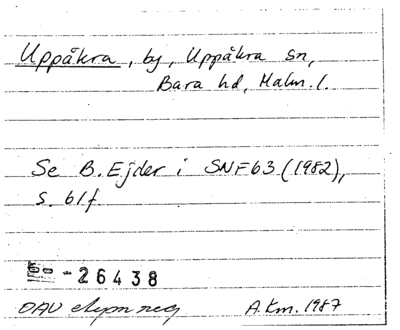 Uppåkra, by, Uppåkra sn,
Bara hd, Malm. l.
Se B. Ejder i SNF 63 (1982),
s. 61f
-26438
OAU
A.Km. 1987